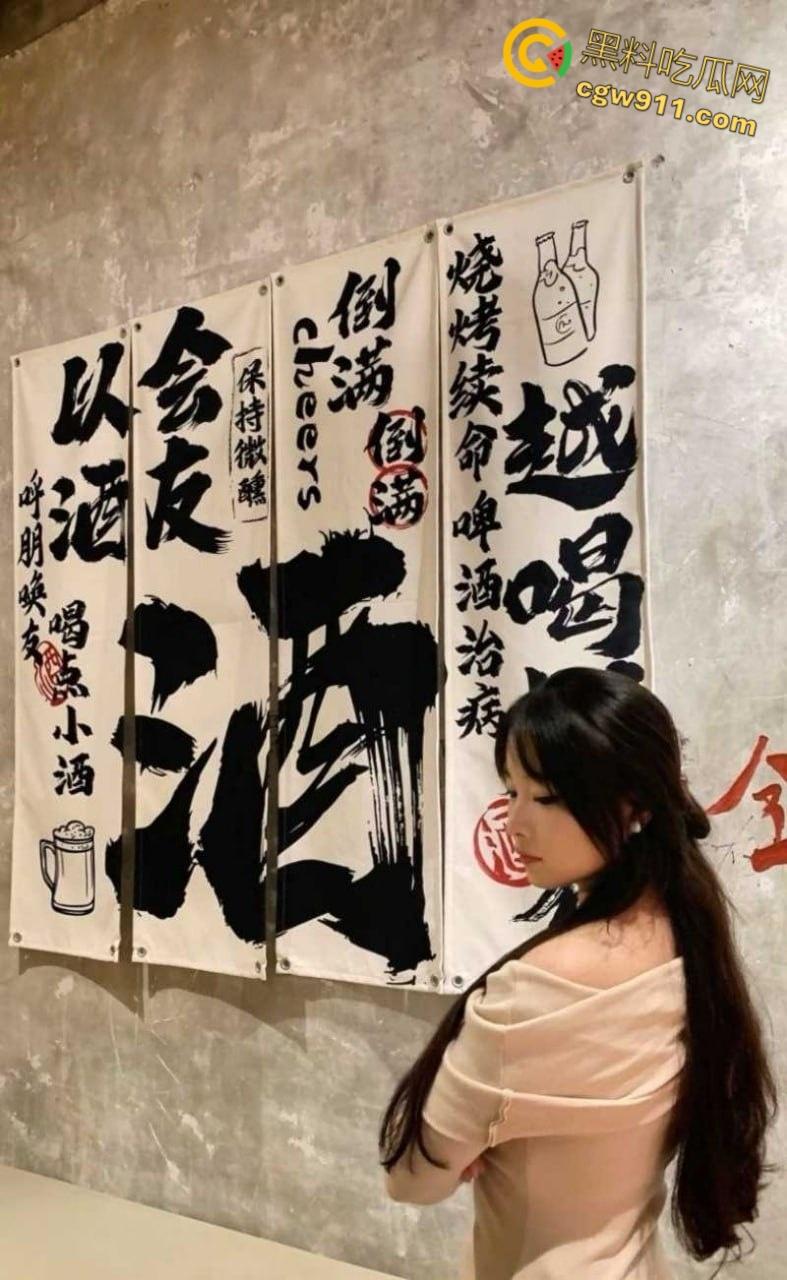 黑料吃瓜网
cgw911.com
以酒
会友
保持微醺
呼朋唤友
喝点小酒
倒满
cheers
倒满
酒
烧烤续命啤酒治病
越喝
酒
酒